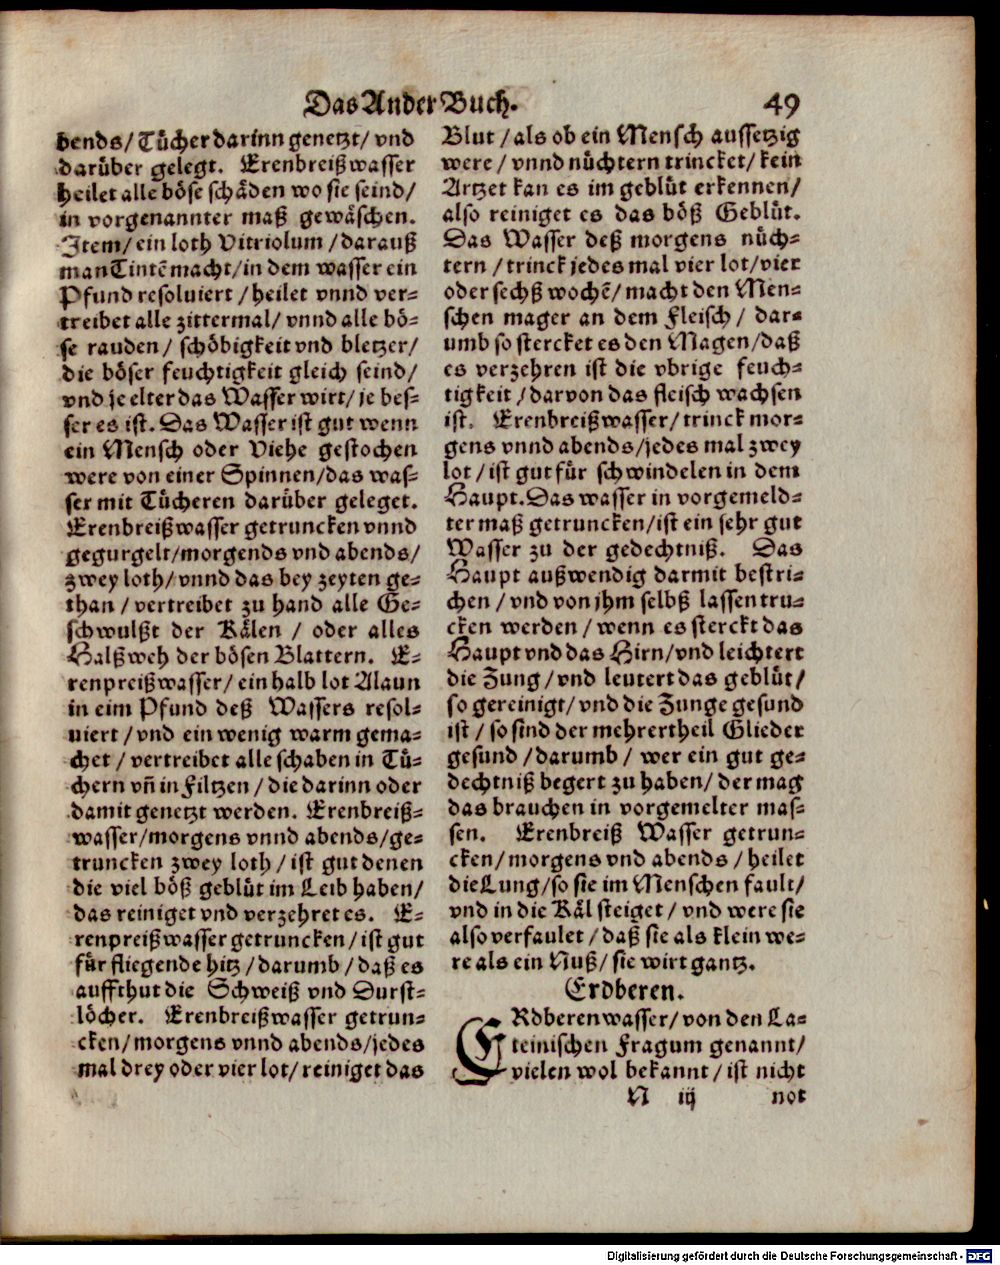 Das Ander Buch. 49
bends/ Tücher darinn genetzt/ vnd
darüber gelegt. Erenbreißwasser
heilet alle böse schäden wo sie seind/
in vorgenannter maß gewäschen.
Item/ ein loth Vitriolum /darauß
man Tintẽ macht/in dem wasser ein
Pfund resoluiert /heilet vnnd ver-
treibet alle zittermal/ vnnd alle bö-
se rauden/ schöbigkeit vnd bletzer/
die böser feuchtigkeit gleich seind/
vnd je elter das Wasser wirt/ je bes-
ser es ist. Das Wasser ist gut wenn
ein Mensch oder Viehe gestochen
were von einer Spinnen/das was-
ser mit Tücheren darüber geleget.
Erenbreißwasser getruncken vnnd
gegurgelt/morgends vnd abends/
zwey loth/ vnnd das bey zeyten ge-
than / vertreibet zu hand alle Ge-
schwulßt der Kälen / oder alles
Halßweh der bösen Blattern. E-
renpreißwasser/ ein halb lot Alaun
in eim Pfund deß Wassers resol-
uiert /vnd ein wenig warm gema-
chet / vertreibet alle schaben in Tü-
chern vñ in Filtzen / die darinn oder
damit genetzt werden. Erenbreiß-
wasser/morgens vnnd abends/ge-
truncken zwey loth / ist gut denen
die viel böß geblüt im Leib haben/
das reiniget vnd verzehret es. E-
renpreißwasser getruncken/ ist gut
für fliegende hitz/darumb /daß es
auffthut die Schweiß vnd Durst-
löcher. Erenbreißwasser getrun-
cken/morgens vnnd abends/jedes
mal drey oder vier lot/ reiniget das
Blut /als ob ein Mensch aussetzig
were / vnnd nüchtern trincket/ kein
Artzet kan es im geblüt erkennen/
also reiniget es das böß Geblüt.
Das Wasser deß morgens nüch-
tern /trinck jedes mal vier lot/vier
oder sechß wochẽ/ macht den Men-
schen mager an dem Fleisch / dar-
umb so stercket es den Magen/daß
es verzehren ist die vbrige feuch-
tigkeit /darvon das fleisch wachsen
ist. Erenbreißwasser/trinck mor-
gens vnnd abends/jedes mal zwey
lot /ist gut für schwindelen in dem
Haupt. Das wasser in vorgemeld-
ter maß getruncken/ist ein sehr gut
Wasser zu der gedechtniß. Das
Haupt außwendig darmit bestri-
chen / vnd von jhm selbß lassen tru-
cken werden / wenn es sterckt das
Haupt vnd das Hirn/vnd leichtert
die Zung /vnd leutert das geblüt/
so gereinigt/ vnd die Zunge gesund
ist / so sind der mehrertheil Glieder
gesund /darumb / wer ein gut ge-
dechtniß begert zu haben/ der mag
das brauchen in vorgemelter mas-
sen. Erenbreiß Wasser getrun-
cken/morgens vnd abends / heilet
die Lung/so sie im Menschen fault/
vnd in die Käl steiget / vnd were sie
also verfaulet /daß sie als klein we-
re als ein Nuß/ sie wirt gantz.
Erdberen.
ERdberenwasser/ von den La-
teinischen Fragum genannt/
vielen wol bekannt / ist nicht
N iij not
Digitalisierung gefördert durch die Deutsche Forschungsgemeinschaft - DFG